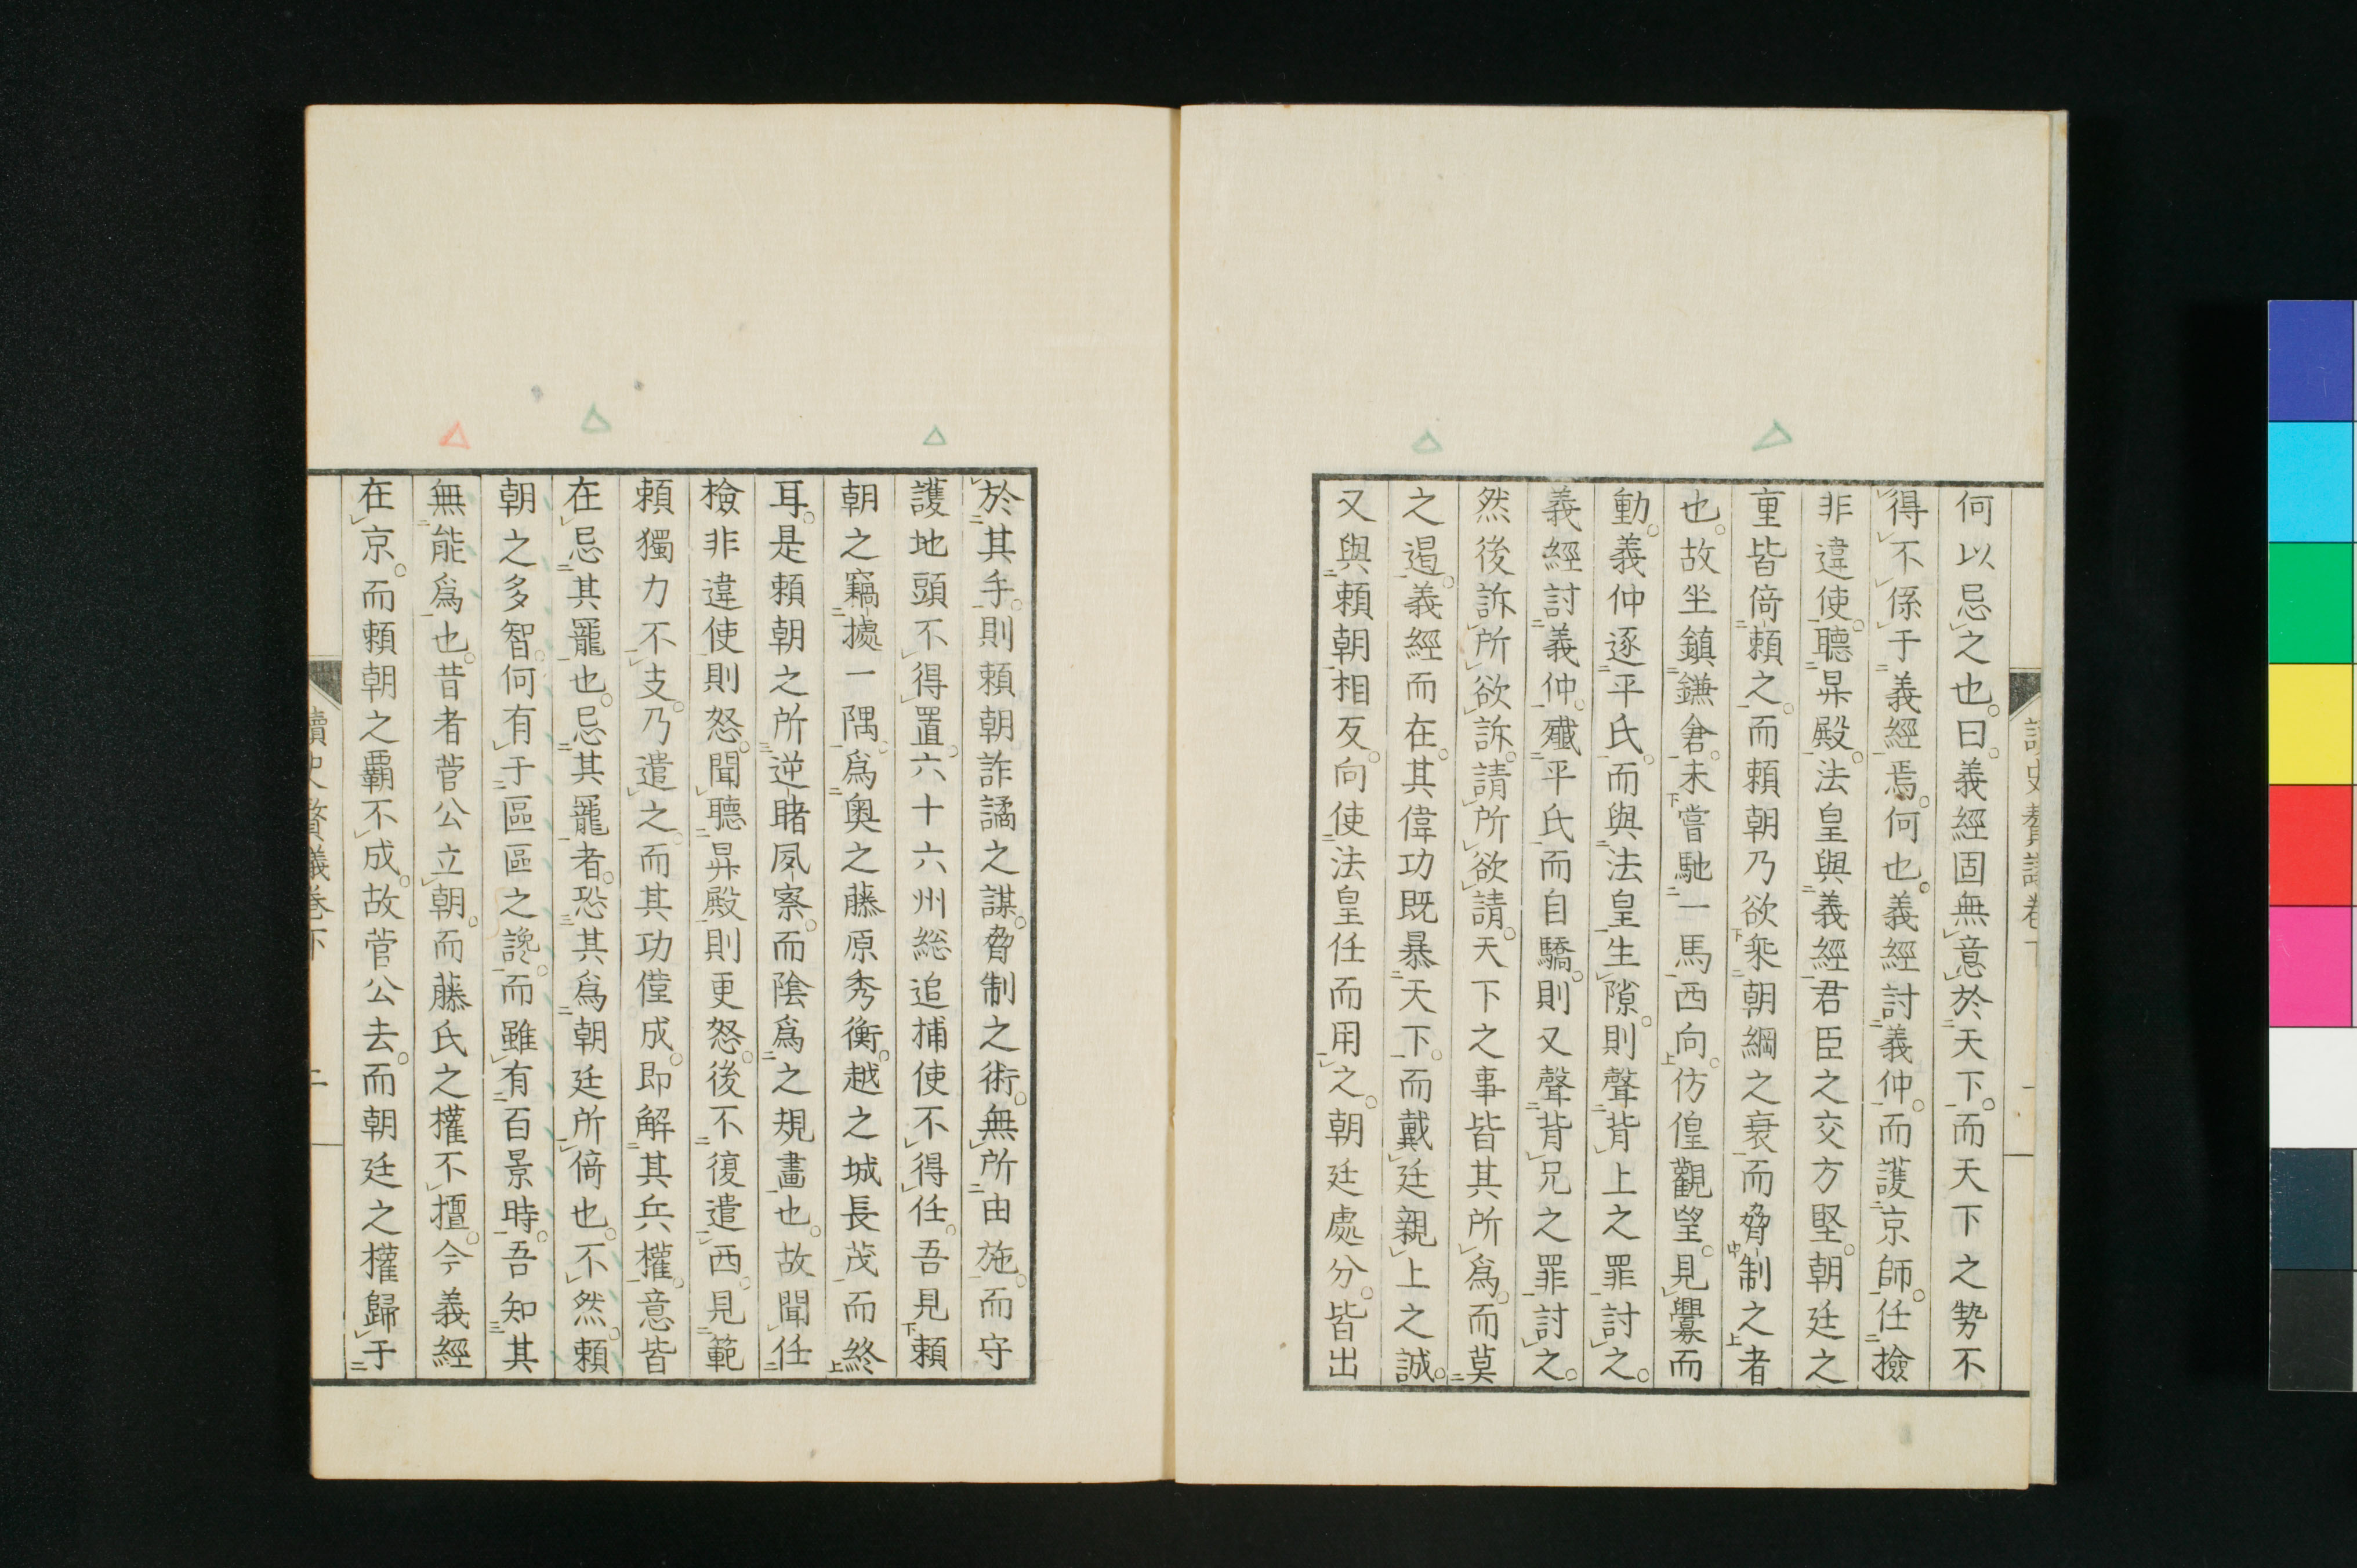 何以忌之也。曰。義經固無意於天下。而天下之勢不
得不係于義經焉。何也。義經討義仲。而護京師。任撿
非違使。聽昇殿。法皇與義經君臣之交方堅。朝廷之
重皆倚賴之。而賴朝乃欲乘朝綱之衰而脅制之者
也。故坐鎮鎌倉。未嘗馳一馬西向。仿偟觀望。見釁而
動。義仲逐平氏。而與法皇生隙。則聲背上之罪討之。
義經討義仲。殱平氏而自驕。則又聲背兄之罪討之。
然後訴所欲訴。請所欲請。天下之事皆其所爲。而莫
之遏。義經而在。其偉功既暴天下。而戴廷親上之誠。
又與賴朝相反。向使法皇任而用之。朝廷處分。皆出
於其手。則賴朝詐譎之謀。脅制之術。無所由施。而守
護地頭不得置。六十六州総追捕使不得任。吾見賴
朝之竊據一隅。爲奧之藤原秀衡。越之城長茂而終
耳。是賴朝之所逆睹夙察。而陰爲之規畫也。故聞任
檢非違使則怒。聞聽昇殿則更怒。後不復遣西。見範
賴獨力不支。乃遣之。而其功僅成。即解其兵權。意皆
在忌其寵也。忌其寵者。恐其爲朝廷所倚也。不然。賴
朝之多智。何有于區區之讒。而雖有百景時。吾知其
無能爲也。昔者菅公立朝。而藤氏之權不擅。今義經
在京。而賴朝之覇不成。故菅公去。而朝廷之權歸于
讀史贅議卷下
二